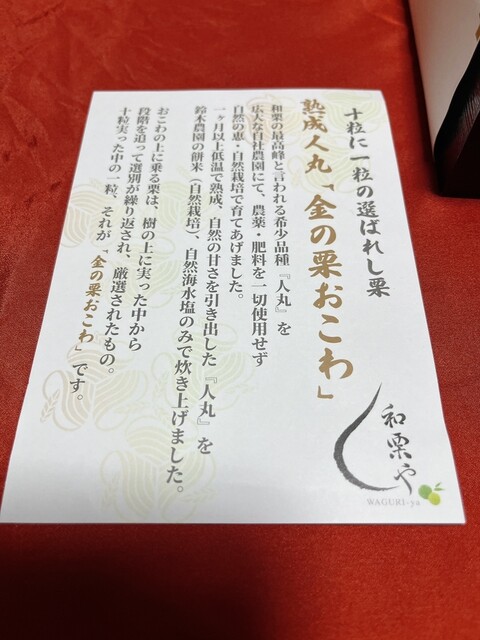 十粒に一粒の選ばれし栗
熟成人丸「金の栗おこわ」
和栗の最高峰と言われる希少品種『人丸』を
広大な自社農園にて、農薬・肥料を一切使用せず
自然の恵・自然栽培で育てあげました。
一ヶ月以上低温で熟成、自然の甘さを引き出した『人丸』を
鈴木農園の餅米(自然栽培)、自然海水塩のみで炊き上げました。
おこわの上に乗る栗は、樹の上に実った中から
段階を追って選別が繰り返され、厳選されたもの。
十粒実った中の一粒、それが「金の栗おこわ」です。
和栗や
WAGURI-ya